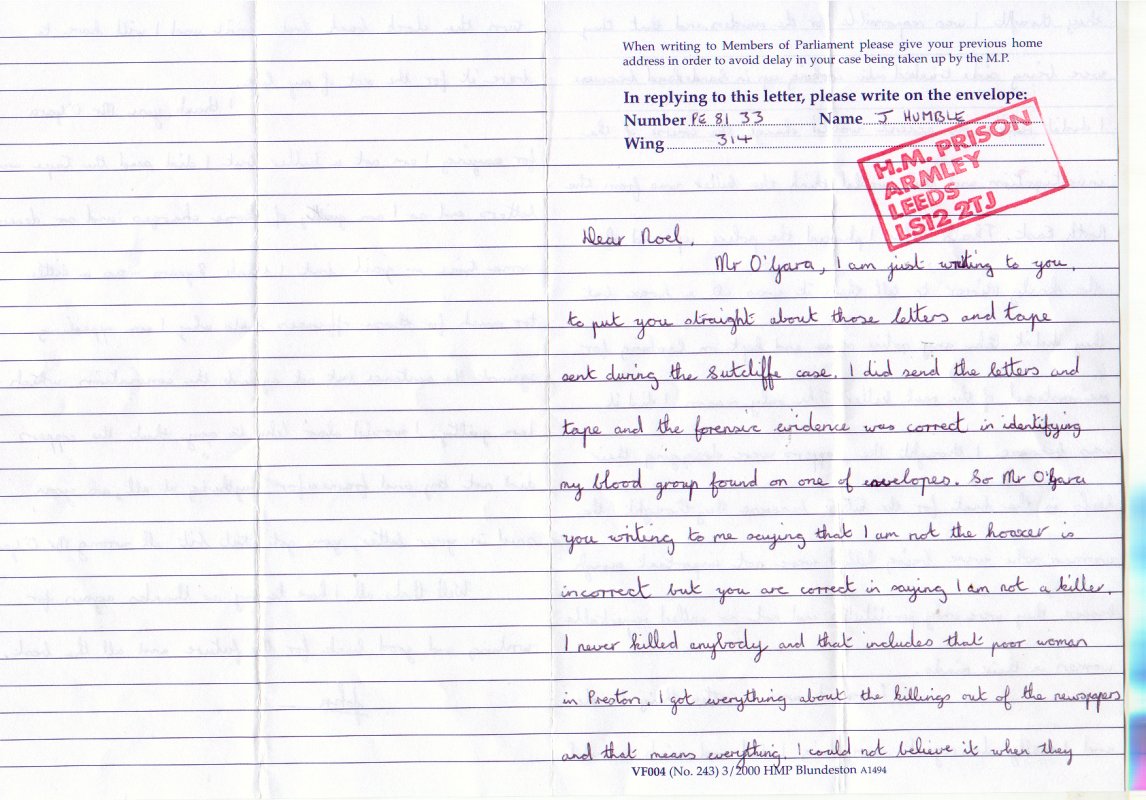 When writing to Members of Parliament please give your previous home
address in order to avoid delay in your case being taken up by the M.P.
In replying to this letter, please write on the envelope:
Number PE 81 33 Name J HUMBLE
Wing 314
H.M. PRISON
ARMLEY
LEEDS
LS12 2TJ
Dear Noel,
Mr O'Gara, I am just writing to you,
to put you straight about those letters and tape
sent during the Sutcliffe case. I did send the letters and
tape and the forensic evidence was correct in identifying
my blood group found on one of envelopes. So Mr O'Gara
you writing to me saying that I am not the hoaxer is
incorrect but you are correct in saying I am not a killer.
I never killed anybody and that includes that poor woman
in Preston. I got everything about the killings out of the newspapers
and that means everything. I could not believe it when they
VF004 (No. 243) 3/2000 HMP Blundeston A1494